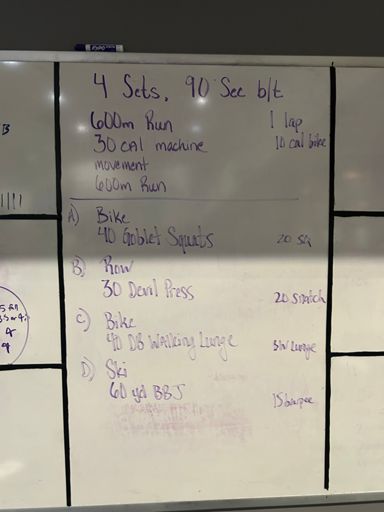 EXPO
4 Sets, 90 Sec b/t
600m Run 1 lap
30 cal machine 10 cal bike
movement
600m Run
A) Bike
40 Goblet Squats 20 SQ
B) Row
30 Devil Press 20 snatch
C) Bike
40 DB Walking Lunge Lunge
D) Ski
60 yd BBJ 15 burpee
B